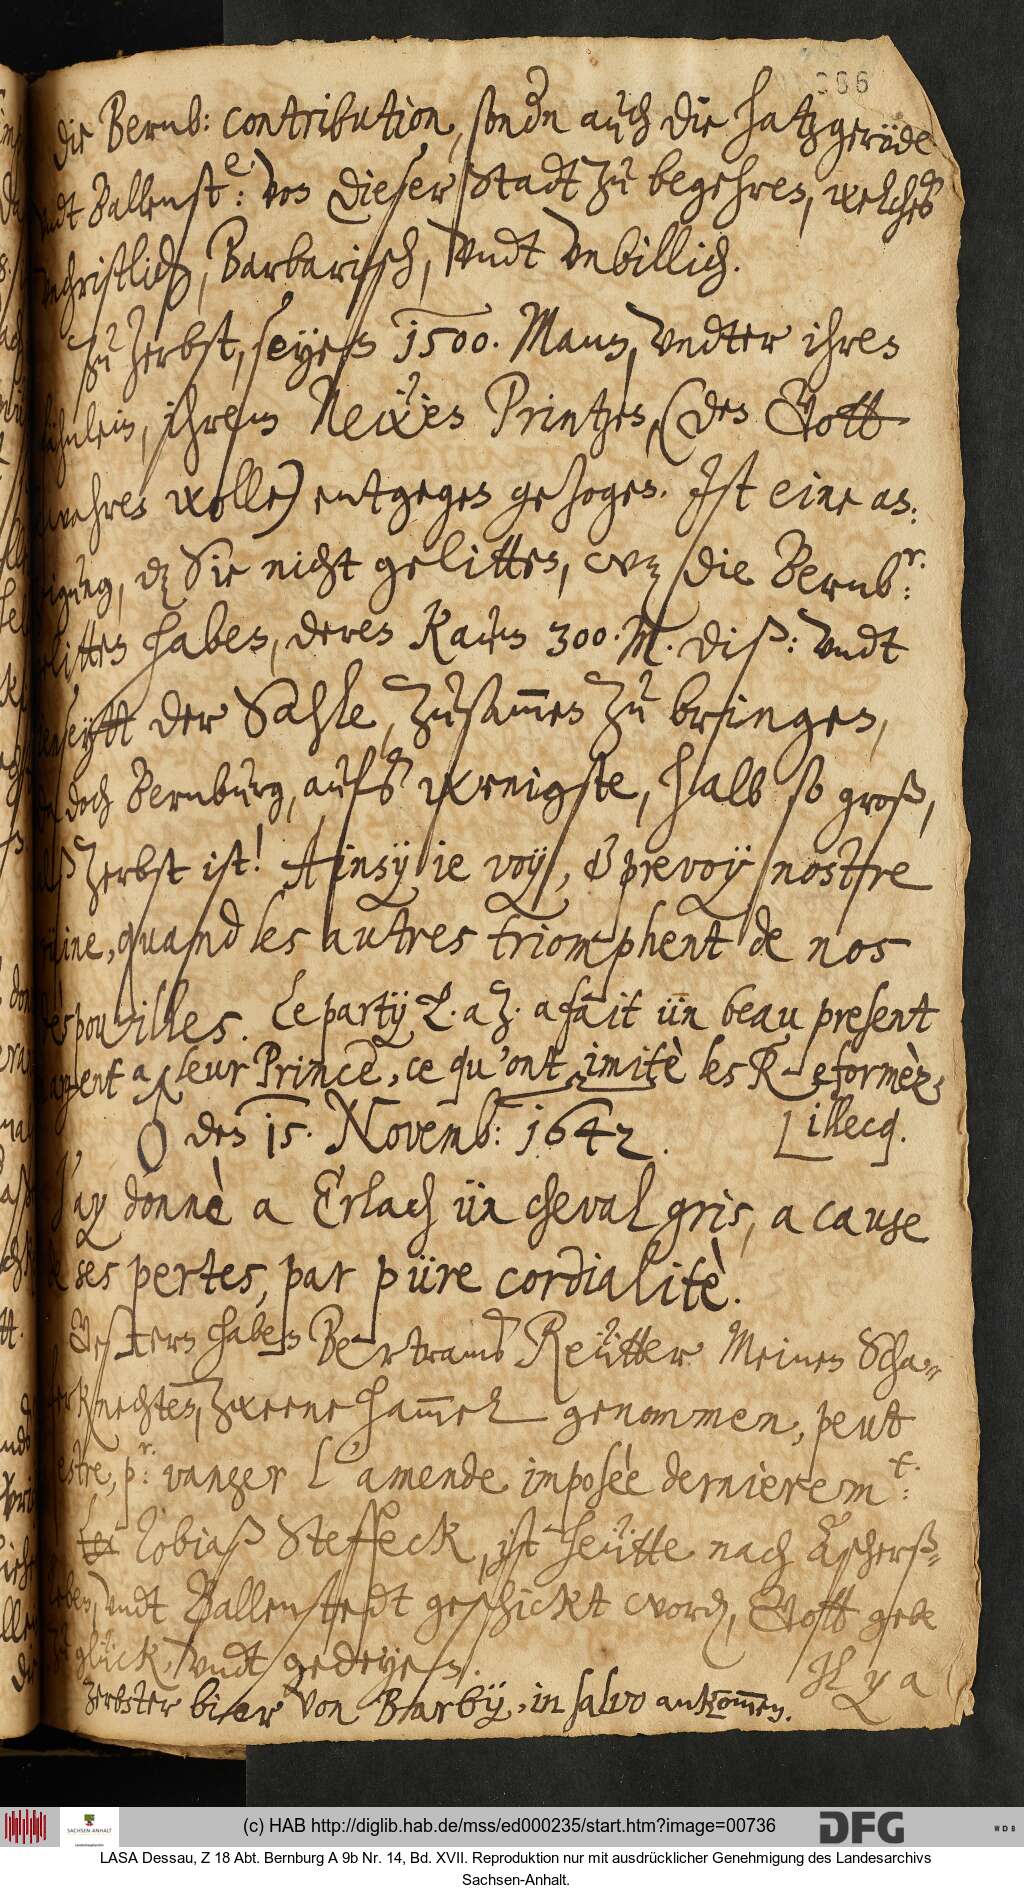 386
die Bernb: contribution, sondern auch die Hatzgeröde
vndt Ballenst:e von dieser Stadt zu begehren, welches
vnchristlich, Barbarisch, vndt vnbillich.
Zu Zerbst, seyen 1500. Mann, vndter ihren
fähnlein, ihrem Newen Printzen, (den Gott
bewahren wolle) entgegen gezogen. Ist eine an:
zeigung, daß Sie nicht gelitten, wie die Bernb:r.
gelitten haben, deren kaum 300. M. diß: vndt
jenseytt der Sahle, zusammen zu bringen,
da doch Bernburg, aufs wenigste, halb so groß,
alß Zerbst ist! Ainsy ie voy, & prevoy nostre
rüine, quand les autres triomphent de nos
despouilles. Le party L. a Z. a fait ün beau present
d'argent a leur Prince, ce qu'ont imitè les Reformèz
☉ den 15. Novemb: 1642. Lillecq.
J'ay donnè a Erlach ün cheval gris, a cause
de ses pertes, par püre cordialitè.
Gestern haben Bertrams Reütter Meinen Scha-
ferknechten, zweene hammel genommen, peut
estre, p:r. vanger l'amende imposèe dernierem:t.
Tobiaß Steffeck, ist heütte nach Ascherß-
leben, vndt Ballenstedt geschickt worden, Gott gebe
zu glück, vndt gedeyen. Il y a
Zerbster bier von Barby, in salvo ankommen.
(c) HAB http://diglib.hab.de/mss/ed000235/start.htm?image=00736
SACHSEN-ANHALT
DFG
WDB
LASA Dessau, Z 18 Abt. Bernburg A 9b Nr. 14, Bd. XVII. Reproduktion nur mit ausdrücklicher Genehmigung des Landesarchivs
Sachsen-Anhalt.